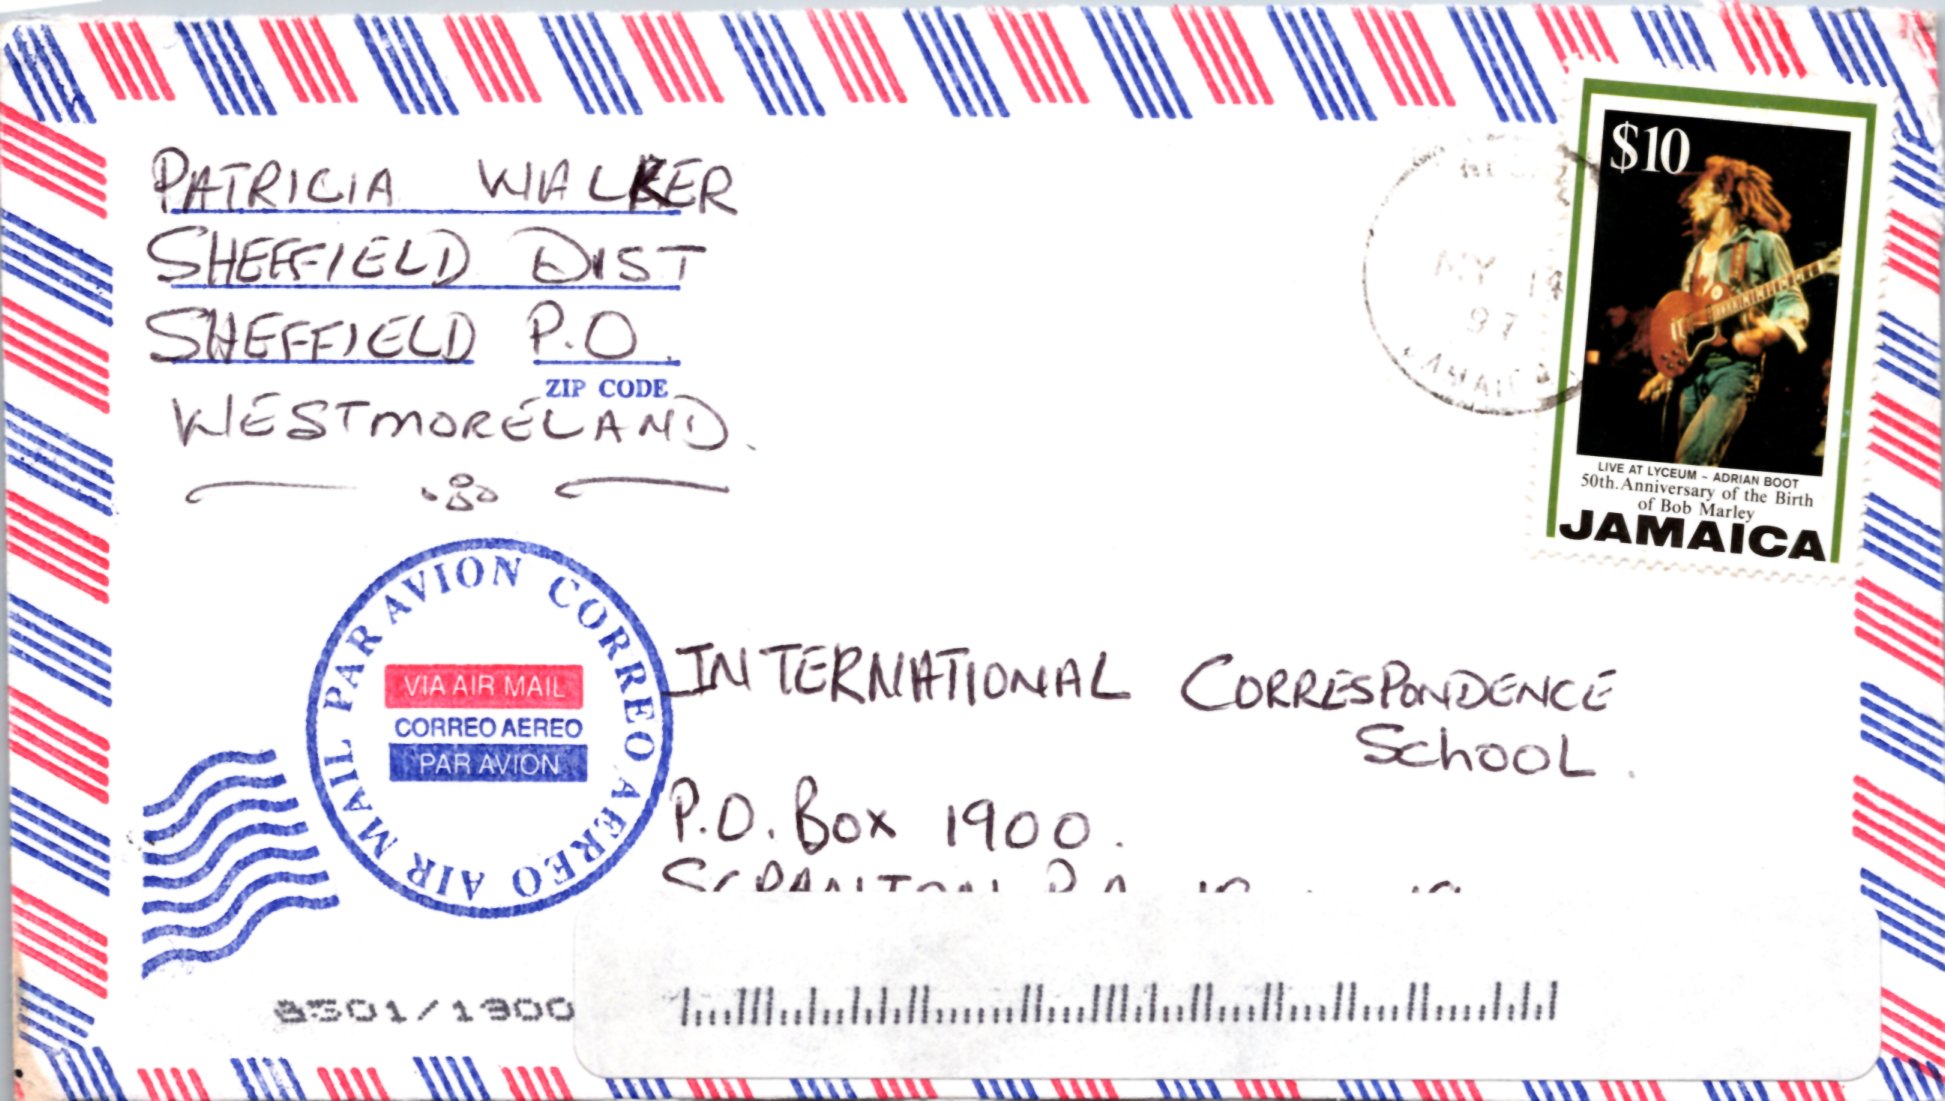 PATRICIA WALKER
SHEFFIELD DIST
SHEFFIELD P.O.
ZIP CODE
WESTMORELAND.
MY 14
97
JAMAICA
$10
LIVE AT LYCEUM - ADRIAN BOOT
50th. Anniversary of the Birth
of Bob Marley
JAMAICA
AIR MAIL PAR AVION CORREO AEREO
VIA AIR MAIL
CORREO AEREO
PAR AVION
INTERNATIONAL CORRESPONDENCE
SCHOOL.
P.O. BOX 1900.
SCRANTON PA
8501/1900